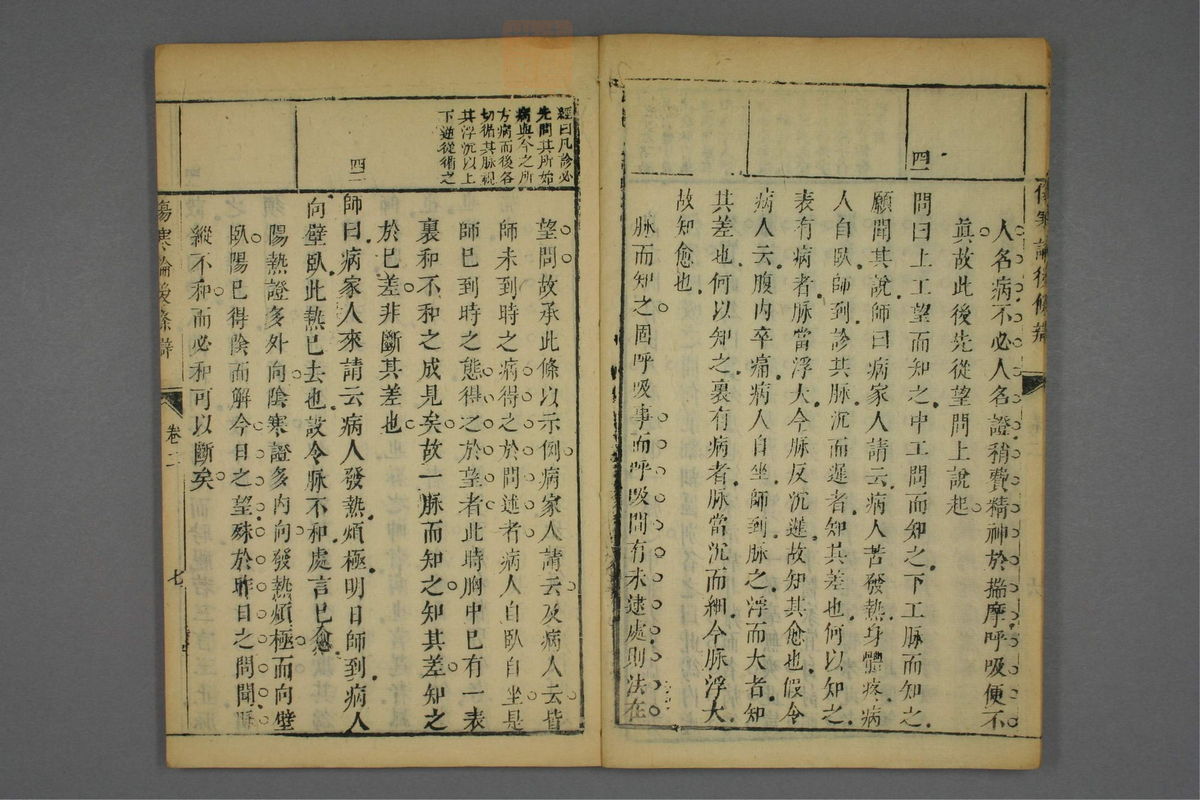 傷寒論後條辯
人名病不必人名證稍費精神於揣摩呼吸便不
眞故此後先從望問上說起
四一
問曰上工望而知之中工問而知之下工脉而知之
願聞其說師曰病家人請云病人苦發熱身體疼病
人自臥師到診其脉沉而遲者知其差也何以知之
表有病者脉當浮大今脉反沉遲故知其愈也假令
病人云腹內卒痛病人自坐師到脉之浮而大者知
其差也何以知之裏有病者脉當沉而細今脉浮大
故知愈也
脉而知之固呼吸事而呼吸間有未逮處則法在
經曰凡診必
先問其所始
病與今之所
方病而後各
切循其脉視
其浮沉以上
下逆從循之
望問故承此條以示例病家人請云及病人云皆
師未到時之病得之於問述者病人自臥自坐是
師已到時之態得之於望者此時胸中已有一表
裏和不和之成見矣故一脉而知之知其差知之
於已差非斷其差也
四二
師曰病家人來請云病人發熱煩極明日師到病人
向壁臥此熱已去也設令脉不和處言已愈
陽熱證多外向陰寒證多內向發熱煩極而向壁
臥陽已得陰而解今日之望殊於昨日之問聞脉
縱不和而必和可以斷矣
傷寒論後條辯
卷二
七